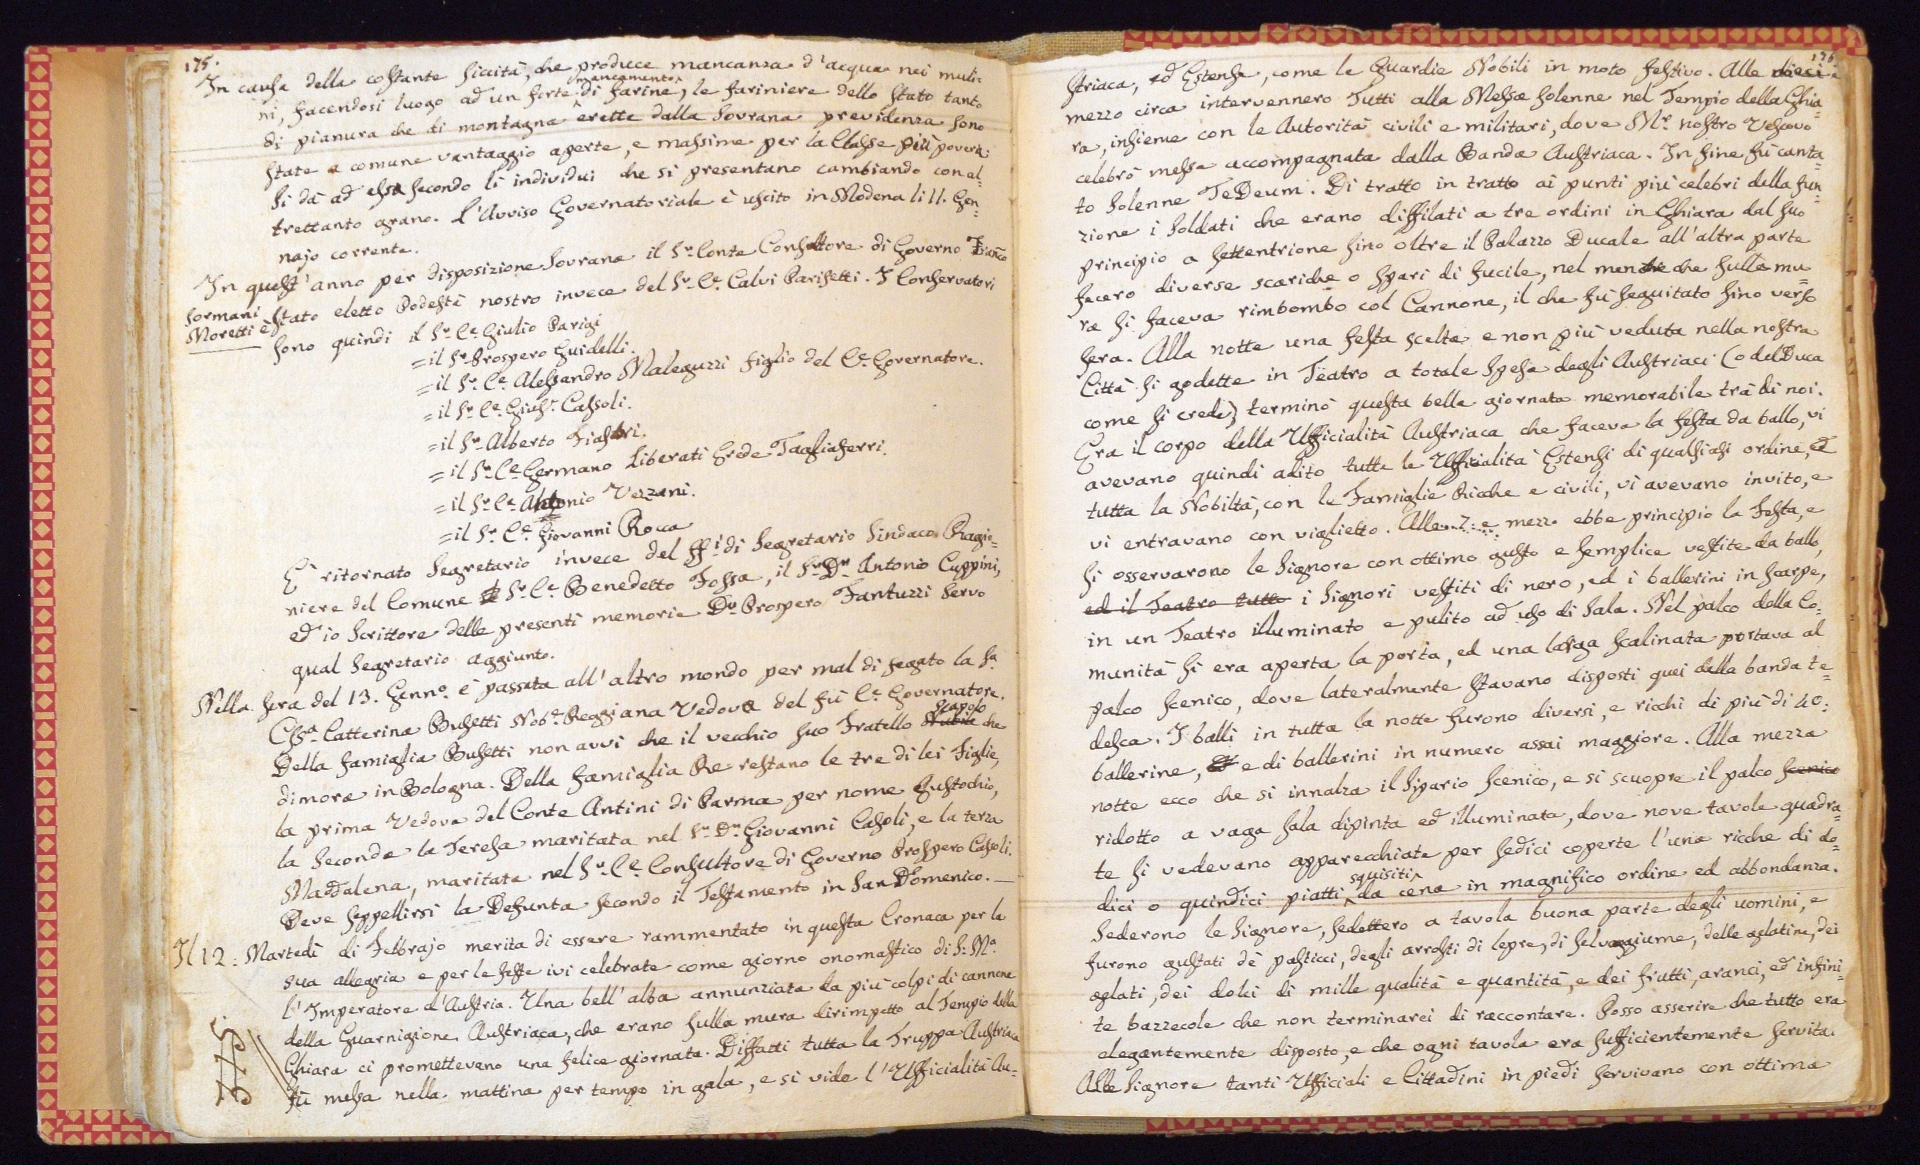 175.
In causa della costante siccità, che produce mancanza d'acqua nei muli=
ni, facendosi luogo ad un forte mancamento di farine, le fariniere dello Stato tanto
di pianura che di montagna erette dalla Sovrana previdenza sono
state a comune vantaggio aperte, e massime per la Classe più povera:
si dà ad essa secondo li individui che si presentano cambiando con al=
trettanto grano. L'Avviso Governatoriale è uscito in Modena li 11. Gen=
najo corrente.
In quest'anno per disposizione Sovrana il Sr. Conte Consultore di Governo Franco
Sormani Moretti è stato eletto Podestà nostro invece del Sr. Ce. Calvi Parisetti. I Conservatori
sono quindi il Sr. Ce. Giulio Parigi
= il Sr. Prospero Guidelli.
= il Sr. Ce. Alessandro Malaguzzi figlio del Ce. Governatore.
= il Sr. Ce. Giuse. Cassoli.
= il Sr. Alberto Fiastri.
= il Sr. Ce. Germano Liberati Erede Tagliaferri.
= il Sr. Ce. Antonio Vezzani.
= il Sr. Ce. Giovanni Rocca
È ritornato Segretario invece del ff.i di Segretario Sindaco Ragio=
niere del Comune Sr. Ce. Benedetto Fossa, il Sr. Dr. Antonio Cuppini,
ed io Scrittore delle presenti memorie Dr. Prospero Fantuzzi servo
qual Segretario aggiunto.
Nella sera del 13. Genno. è passata all'altro mondo per mal di fegato la Sa.
Cssa. Catterina Busetti Nobe. Reggiana Vedova del fù Ce. Governatore.
Della famiglia Busetti non avvi che il vecchio suo Fratello Nubile scapolo che
dimora in Bologna. Della famiglia Re restano le tre di lei Figlie,
la prima Vedova del Conte Antini di Parma per nome Eustochio,
la seconda la Teresa maritata nel Sr. Dn. Giovanni Casoli, e la terza
Maddalena, maritata nel Sr. Ce. Consultore di Governo Prospero Casoli.
Deve seppellirsi la Defunta secondo il Testamento in San Domenico. —
Il 12: Martedì di Febbrajo merita di essere rammentato in questa Cronaca per la
sua allegria e per le feste ivi celebrate come giorno onomastico di S. Ma.
l'Imperatore d'Austria. Una bell'alba annunziata da più colpi di cannone
della Guarnigione Austriaca, che erano sulla mura dirimpetto al Tempio della
Ghiara ci prometteveno una felice giornata. Diffatti tutta la Truppa Austriaca
fù messa nella mattina per tempo in gala, e si vide l'Ufficialità Au=
176.
striaca, ed Estense, come le Guardie Nobili in moto festivo. Alle dieci e
mezzo circa intervennero Tutti alla Messa solenne nel Tempio della Ghia=
ra, insieme con le Autorità civili e militari, dove Mr. nostro Vescovo
celebrò messa accompagnata dalla Banda Austriaca. In fine fù canta=
to solenne TeDeum. Di tratto in tratto ai punti più celebri della fun
zione i soldati che erano diffilati a tre ordini in Ghiara dal suo
principio a settentrione sino oltre il Palazzo Ducale all'altra parte
fecero diverse scariche o spari di fucile, nel mentre che sulle mu
ra si faceva rimbombo col Cannone, il che fù seguitato fino verso
sera. Alla notte una festa scelta e non più veduta nella nostra
Città si godette in Teatro a totale spesa degli Austriaci (o del Duca
come si crede) terminò questa bella giornata memorabile trà di noi.
Era il corpo della Ufficialità Austriaca che faceva la festa da ballo, vi
avevano quindi adito tutte le Ufficialità Estensi di qualsiasi ordine, ed
tutta la Nobiltà, con le Famiglie Ricche e civili, vi avevano invito, e
vi entravano con viglietto. Alle 7 e mezzo ebbe principio la Festa, e
si osservarono le Signore con ottimo gusto e semplice vestite da ballo,
ed il Teatro tutto i Signori vestiti di nero, ed i ballerini in scarpe,
in un Teatro illuminato e pulito ad uso di Sala. Nel palco della Co=
munità si era aperta la porta, ed una larga scalinata portava al
palco scenico, dove lateralmente stavano disposti quei della banda te=
desca. I balli in tutta la notte furono diversi, e ricchi di più di 40:
ballerine, e di ballerini in numero assai maggiore. Alla mezza
notte ecco che si innalza il Sipario scenico, e si scuopre il palco scenico
ridotto a vaga sala dipinta ed illuminata, dove nove tavole quadra=
te si vedevano apparecchiate per sedici coperte l'una ricche di do=
dici o quindici piatti squisiti da cena in magnifico ordine ed abbondanza.
Sederono le Signore, sedettero a tavola buona parte degli uomini, e
furono gustati de' pasticci, degli arrosti di lepre, di selvaggiume, delle gelatine, dei
gelati, dei dolci di mille qualità e quantità, e dei frutti, aranci, ed infini=
te bazzecole che non terminarei di raccontare. Posso asserire che tutto era
elegantemente disposto, e che ogni tavola era sufficientemente servita.
Alle Signore tanti Ufficiali e Cittadini in piedi servivano con ottima